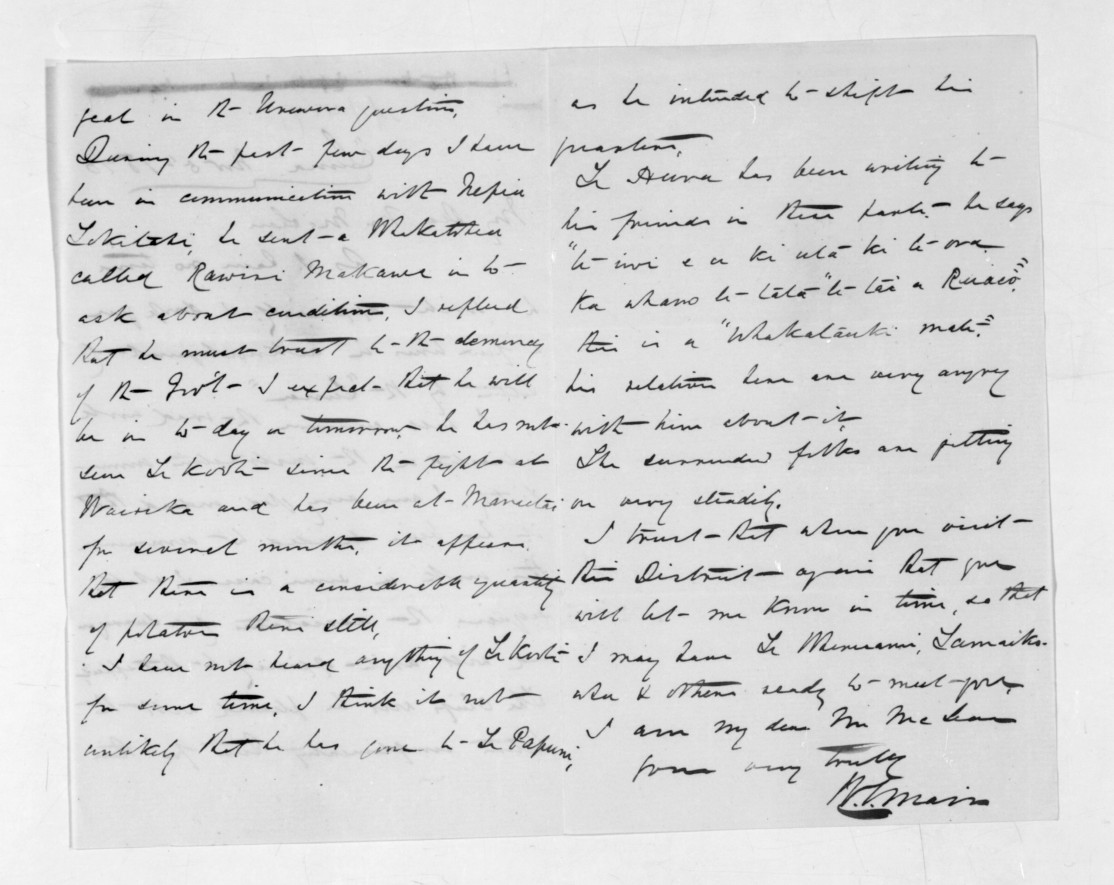 feat in the Urewera question,
During the past few days I have
been in communication with Nepia
Tokitahi, he sent a Whakatohea
called Rawiri Makawe in to
ask about conditions, I replied
that he must trust to the clemency
of the Govt. I expect that he will
be in to day or tomorrow, he has not
seen Te Kooti since the fight at
Waioeka and has been at Maraetai
for several months, it appears
that there is a considerable quantity
of potatoes there still,
I have not heard anything of Te Kooti
for some time, I think it not
unlikely that he has gone to Te Papuni,
as he intended to shift his
quarters,
Te Hura has been writing to
his friends in these parts he says
"te iwi e u ki uta ki te ora
ka whano te tātā "te tai a Ruaeo",
this is a "Whakatauki mate"
his relations here are very angry
with him about it,
The surrendered folks are getting
on very steadily,
I trust that when you visit
this District again that you
will let me know in time, so that
I may have Te Whenuanui, Tamaiko-
wha & others ready to meet you,
I am my dear Mr McLean
yours very truly
W. G. Mair